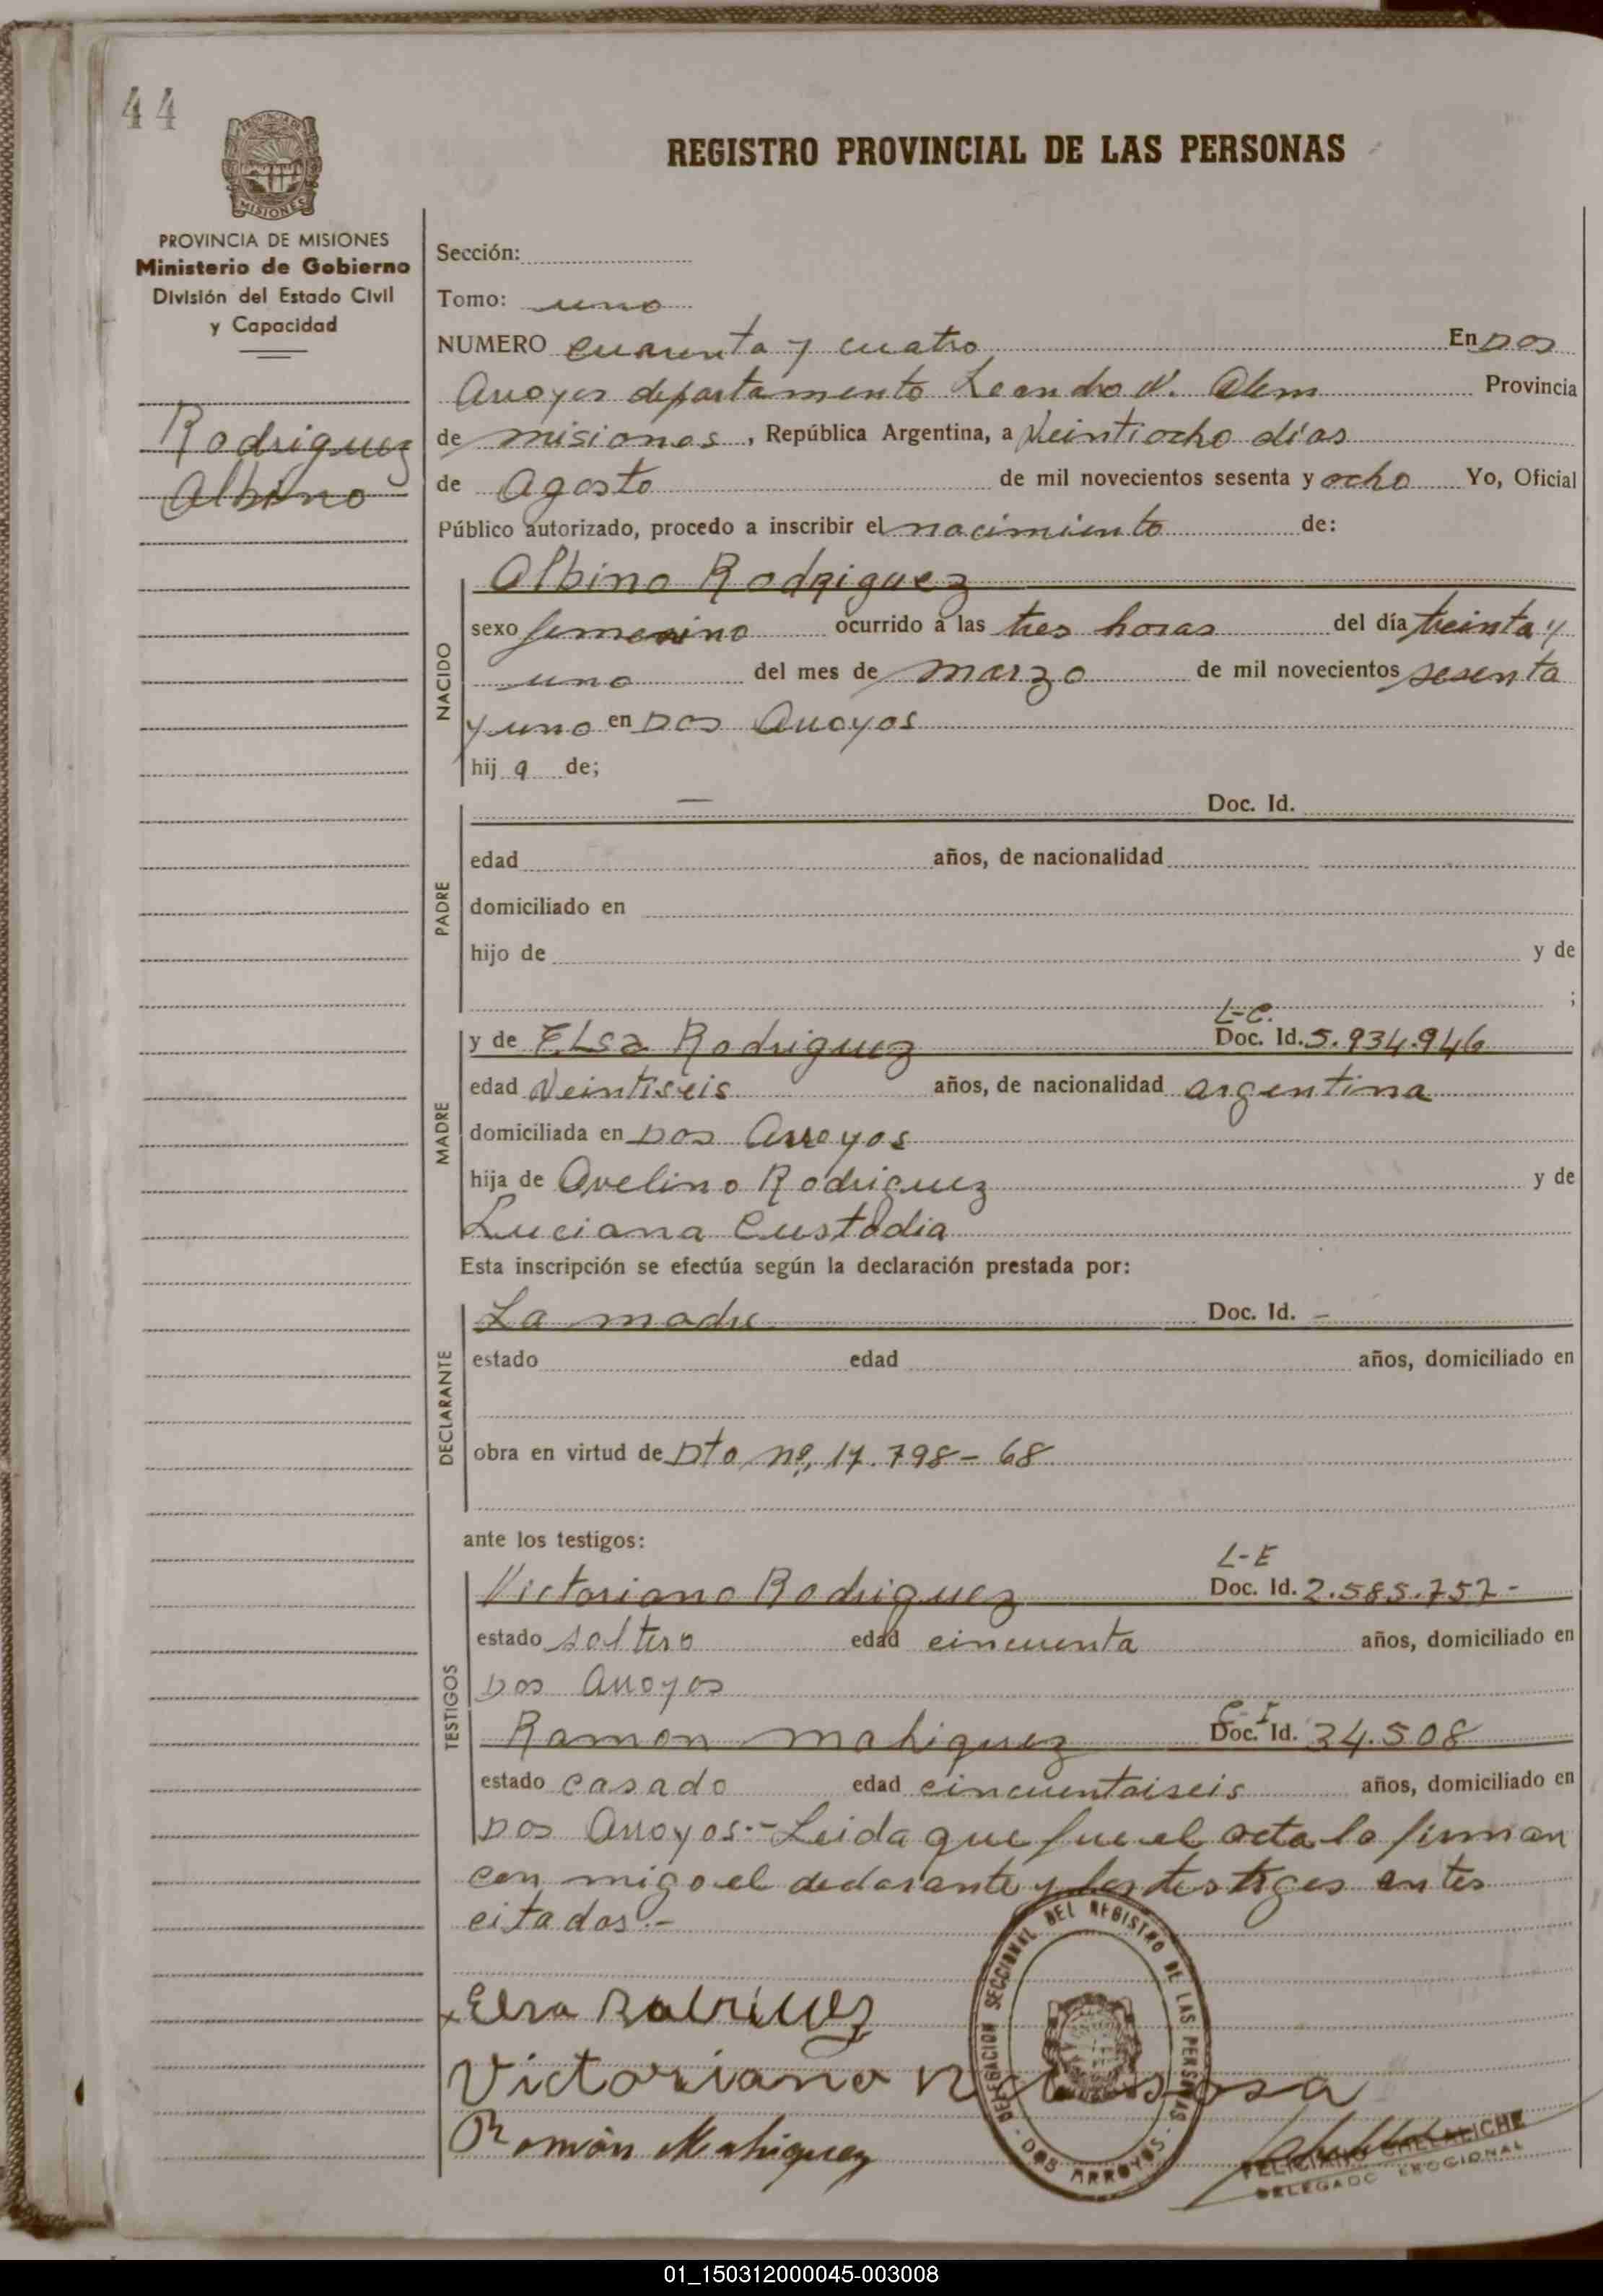 44
PROVINCIA DE MISIONES
MISIONES
Ministerio de Gobierno
División del Estado Civil
y Capacidad
Rodriguez
Albino
REGISTRO PROVINCIAL DE LAS PERSONAS
Sección:
Tomo: uno
NUMERO cuarenta y cuatro En Dos
Arroyos departamento Leandro N. Alem Provincia
de misiones, República Argentina, a Veintiocho días
de Agosto de mil novecientos sesenta y ocho Yo, Oficial
Público autorizado, procedo a inscribir el nacimiento de:
NACIDO
Albino Rodriguez
sexo femenino ocurrido a las tres horas del día treinta y
uno del mes de marzo de mil novecientos sesenta
y uno en Dos Arroyos
hij a de;
PADRE
— Doc. Id.
edad años, de nacionalidad
domiciliado en
hijo de y de
;
MADRE
L-C.
y de ELsa Rodriguez Doc. Id. 5.934.946
edad Veintiseis años, de nacionalidad argentina
domiciliada en Dos Arroyos
hija de Avelino Rodriguez y de
Luciana Custodia
Esta inscripción se efectúa según la declaración prestada por:
DECLARANTE
La madre Doc. Id. –
estado edad años, domiciliado en
obra en virtud de Dto nº, 17.798-68
ante los testigos:
TESTIGOS
L-E
Victoriano Rodriguez Doc. Id. 2.585.757-
estado soltero edad cincuenta años, domiciliado en
Dos Arroyos
C-I
Ramon Mahiquez Doc. Id. 34.508
estado casado edad cincuentaiseis años, domiciliado en
Dos Arroyos.- Leida que fue el acta la firman
con migo el declarante y los testigos antes
citados.-
x Elsa Rodriguez
Victoriano
Román Mahiquez
DELEGACION SECCIONAL DEL REGISTRO DE LAS PERSONAS
- DOS ARROYOS -
FELICIANO
DELEGADO
01_150312000045-003008